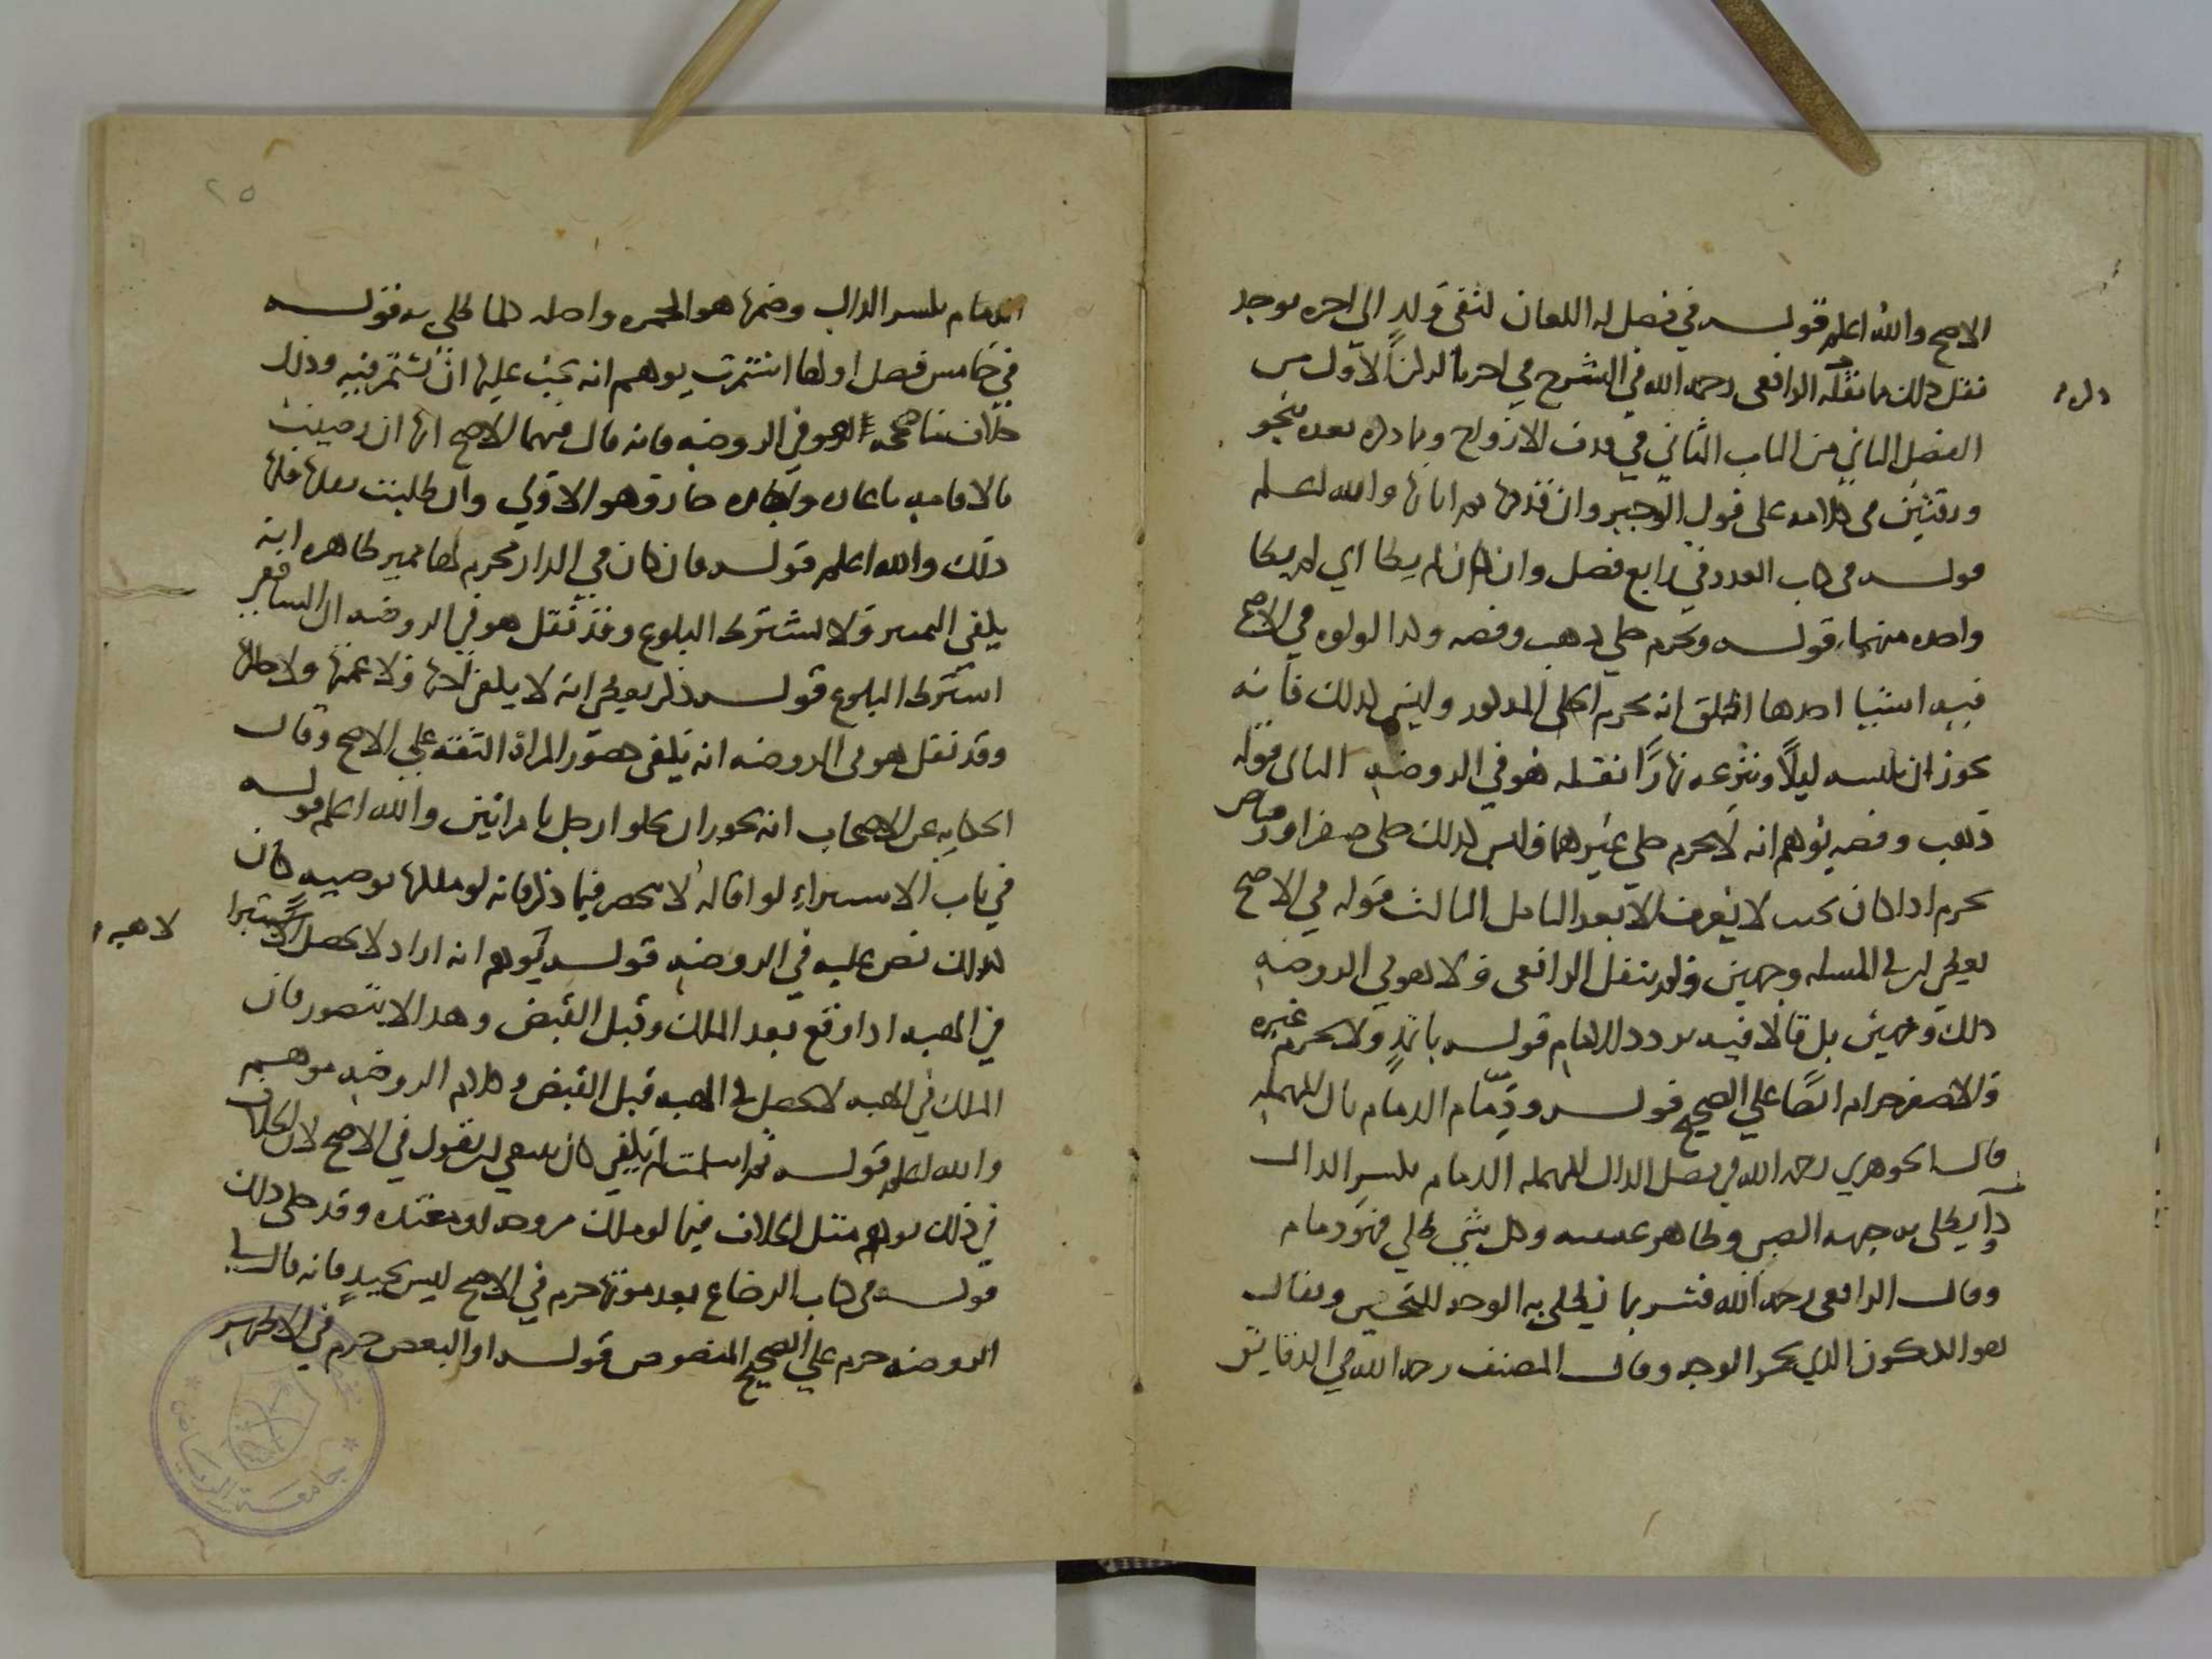 الاصح والله اعلم قوله في فصل له اللعان لنفي ولد الى اخره يوجد
نقل ذلك مما نقله الرافعي رحمه الله في الشرح في اخر الركن الاول من
ذكره
الفصل الثاني من الباب الثاني في قذف الازواج وما ذكره بعده بنحو
ورقتين في كلامه على قول الوجيز وان قذفها ثم ابانها والله اعلم
قوله في كتاب العدد في رابع فصل وان كان لم يطا اي لم يطا
واحده منهما قوله ويحرم حلي ذهب وفضه وكذا لولو في الاصح
فيه اشيا احدها اطلق انه يحرم الحلى المذكور وليس كذلك فانه
يجوز ان تلبسه ليلا وتنزعه نهارا نقله هو في الروضه الثاني قوله
ذهب وفضه يوهم انه لا يحرم حلي غيرهما وليس كذلك حلي صفر او رصاص
يحرم اذا كان بحيث لا يعرف الا بعد التامل الثالث قوله في الاصح
يعطي ان في المسله وجهين ولم ينقل الرافعي ولا هو في الروضه
ذلك وجهين بل قالا فيه تردد للامام قوله باثمد ولا يحرم غيره
والاصفر حرام ايضا على الصحيح قوله ودمام الدمام بالدال المهمله
قال الجوهري رحمه الله في فصل الدال المهمله الدمام بكسر الدال
دوا يطلى به جبهه الصبي وظاهر عينيه وكل شي طلي فهو دمام
وقال الرافعي رحمه الله فسر بما يطلى به الوجه للتحسين ويقال
هو الكلكون الذي يحمر الوجه وقال المصنف رحمه الله في الدقايق
٢٥
الدمام بكسر الدال وضمها هو الحمره واصله كلما طلي به قوله
في خامس فصل اولها استمرت يوهم انه يجب عليها ان تستمر فيه وذلك
خلاف ما صححه هو في الروضه فانه قال فيها الاصح انها ان رضيت
بالاقامه باعاره او اجاره جاز وهو الاولى وان طلبت نقلها فلها
ذلك والله اعلم قوله فان كان في الدار محرم لها مميز ظاهره انه
يكفي المميز ولا يشترط البلوغ وقد نقل هو في الروضه ان الشافعي
اشترط البلوغ قوله ذكر يعطي انه لا يكفي اختها ولا عمتها ولا خالتها
وقد نقل هو في الروضه انه يكفي حضور المراه الثقه على الاصح وقال
الحكايه عن الاصحاب انه يجوز ان يخلو رجل بامراتين والله اعلم قوله
في باب الاستبراء لو اقاله لا يحصر فيما ذكر فانه لو ملكها بوصيه كان
كذلك نص عليه في الروضه قوله لا هبه يوهم انه اراد لا يحصل الاستبرا
في الهبه اذا وقع بعد الملك وقبل القبض وهذا لا يتصور فان
الملك في الهبه لا يحصل في الهبه قبل القبض وكلام الروضه موهم
والله اعلم قوله ثم اسلمت لم يكفي كان ينبغي ان يقول في الاصح لان الخلاف
في ذلك مثل الخلاف فيما لو ملك مزوجه او معتده وقد حكى ذلك
قوله في كتاب الرضاع بعد موتها حرم في الاصح ليس بجيد فانه قال في
الروضه حرم على الصحيح المنصوص قوله او البعض حرم في الاظهر
جامعة الرياض